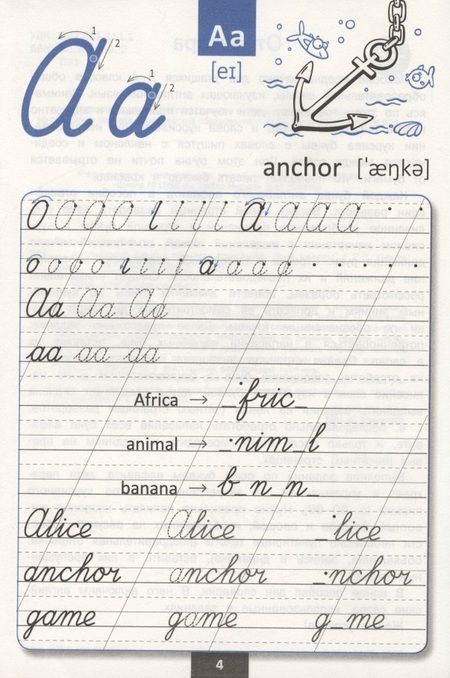 Aa
Aa
1
2
1
2
[eɪ]
anchor [ˈæŋkə]
O O O O l l l l A A A A
o o o o ı ı ı ı a a a a
Aa Aa Aa
aa aa aa
Africa → _fric_
animal → _nim_l
banana → b_n_n_
Alice Alice _lice
anchor anchor _nchor
game game g_me
4